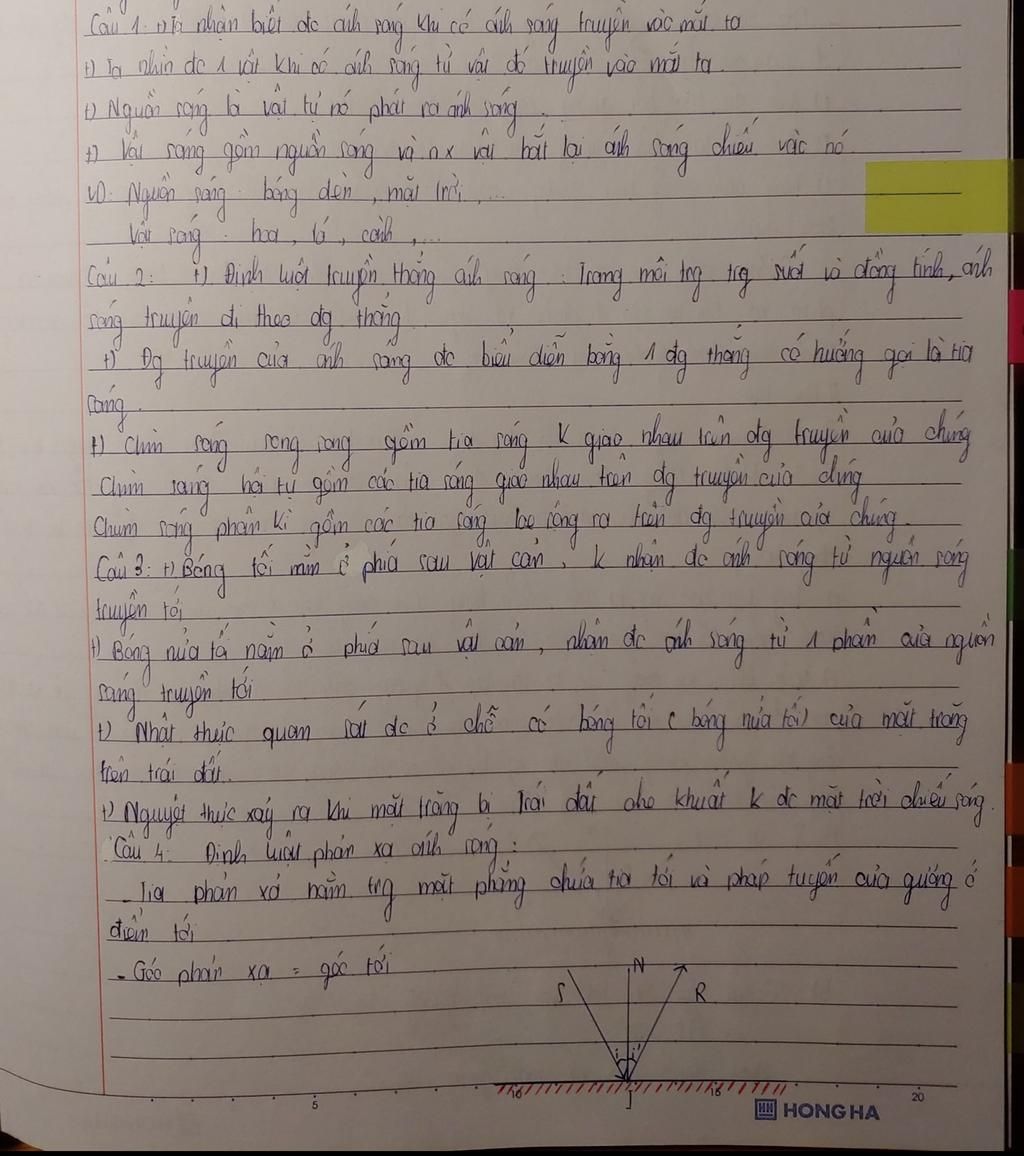 Câu 1: +) Ta nhận biết đc ánh sáng khi có ánh sáng truyền vào mắt ta
+) Ta nhìn đc 1 vật khi có ánh sáng từ vật đó truyền vào mắt ta
+) Nguồn sáng là vật tự nó phát ra ánh sáng
+) Vật sáng gồm nguồn sáng và nx vật hắt lại ánh sáng chiếu vào nó
VD: Nguồn sáng: bóng đèn, mặt trời,...
Vật sáng: hoa, lá, cành,...
Câu 2: +) Định luật truyền thẳng ánh sáng: Trong môi trg trg suốt và đồng tính, ánh
sáng truyền đi theo đg thẳng
+) Đg truyền của ánh sáng đc biểu diễn bằng 1 đg thẳng có hướng gọi là tia
sáng.
+) Chùm sáng song song gồm tia sáng k giao nhau trên đg truyền của chúng
Chùm sáng hội tụ gồm các tia sáng giao nhau trên đg truyền của chúng
Chùm sáng phân kì gồm các tia sáng loe rộng ra trên đg truyền của chúng.
Câu 3: +) Bóng tối nằm ở phía sau vật cản, k nhận đc ánh sáng từ nguồn sáng
truyền tới
+) Bóng nửa tối nằm ở phía sau vật cản, nhận đc ánh sáng từ 1 phần của nguồn
sáng truyền tới
+) Nhật thực quan sát đc ở chỗ có bóng tối (bóng nửa tối) của mặt trăng
trên trái đất.
+) Nguyệt thực xảy ra khi mặt trăng bị Trái đất che khuất k đc mặt trời chiếu sáng.
Câu 4: Định luật phản xạ ánh sáng:
- Tia phản xạ nằm trg mặt phẳng chứa tia tới và pháp tuyến của gương ở
điểm tới
- Góc phản xạ = góc tới
S N R
i i'
I
5 10 15 20
HONG HA